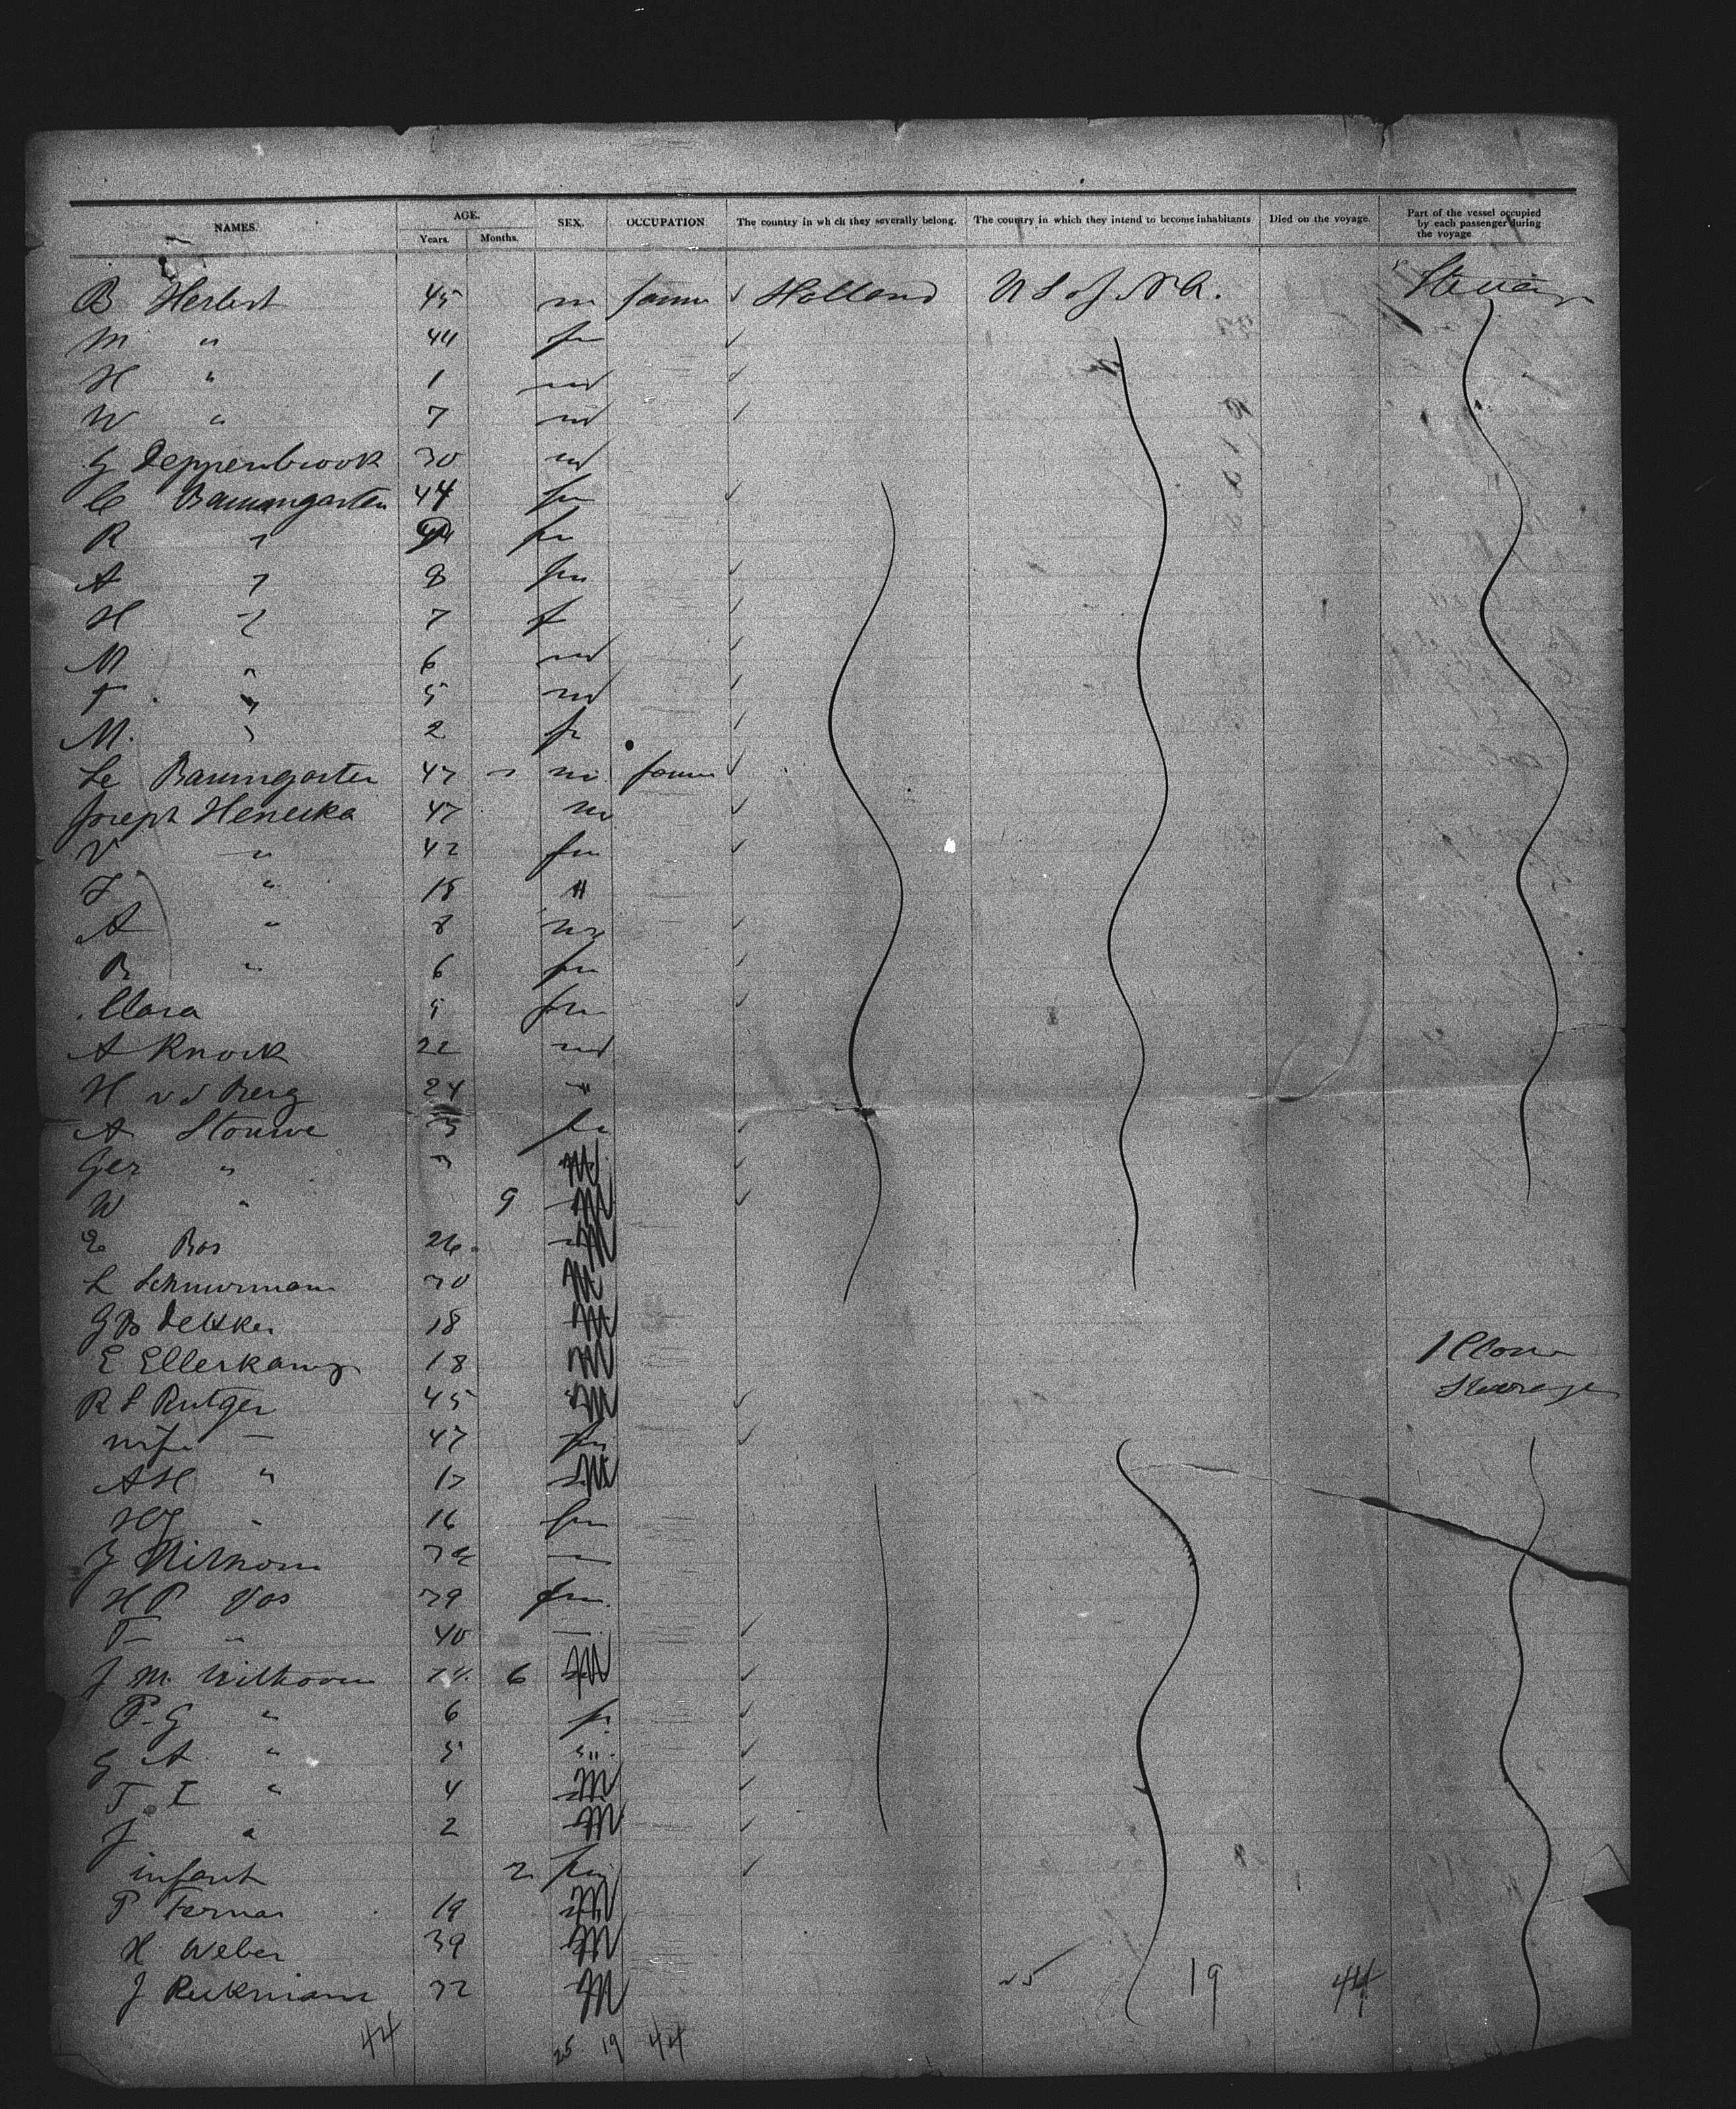 NAMES. AGE. Years. Months. SEX. OCCUPATION The country in wh ch they severally belong. The country in which they intend to become inhabitants Died on the voyage. Part of the vessel occupied by each passenger during the voyage
B Herbert 45 m farmer Holland U S of N A.
M " 44 fm
H " 1 m
W " 7 m
G Deppenbrook 30 m
C Baumgarten 44 fm
R " fm
A " 8 fm
H " 7 f
M " 6 m
F " 5 m
M. " 2 f
Le Baumgarten 47 m farmer
Joseph Henecka 47 m
V " 42 fm
F " 18 "
A " 8 m
B " 6 fm
Clara 5 fm
A Knock 22 m
H v d Berg 24 "
A Stouwe fm
Ger " M
W " 9 M
E Bos 26. M
L Schuurman 30 M
G B Dekker 18 M
E Ellerkamp 18 M
R S Rutger 45 M Steerage
wife — 47 fm
A H " 17 M
H J " 16 fm
J
H P Vos 39 fm.
T — " 40 —
J M. 6 M
P-G " 6 f
G A " 5 "
T I " 4 M
J " 2 M
infant 2 fm
P 19 M
H Weber 39 M
J Reekmann 32 M 25 19 44
44 25 19 44